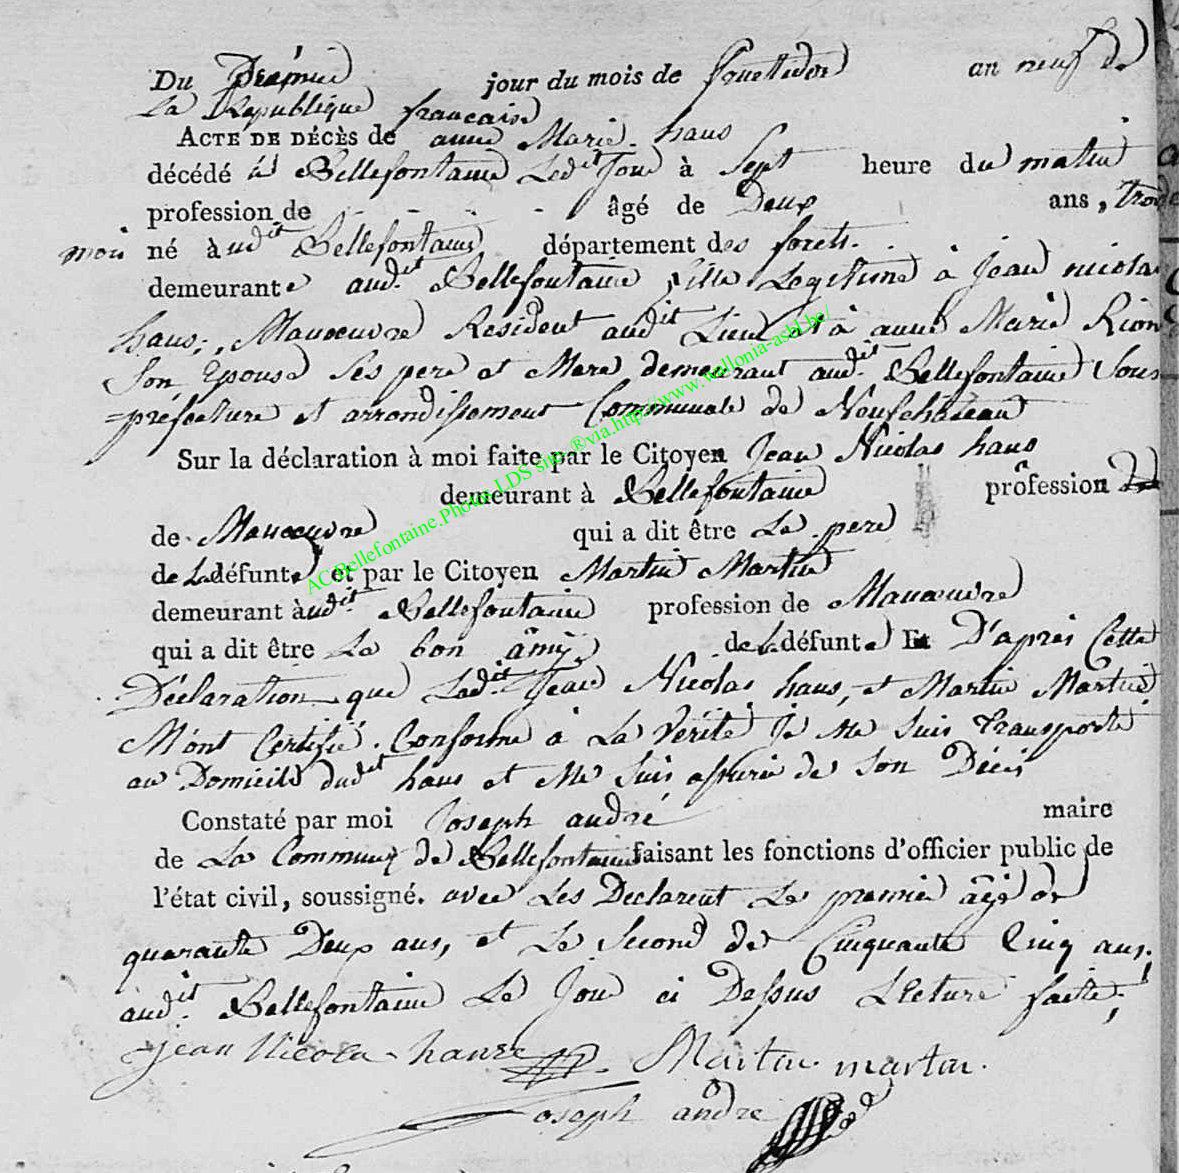 Du Prémier jour du mois de fructidor an neuf de
La Republique francaise
ACTE DE DÉCÈS de anne Marie hans
décédé à Bellefontaine Ledit Jour à Sept heure du matin
profession de - âgé de Deux ans, trois
mois né àudit Bellefontaine département des forets.
demeurante audit Bellefontaine fille Legitime à Jean nicolas
hans, Manoeuvre Resident audit Lieu et à anne Marie Rion
Son Epouse Ses pere et Mere demeurant audit Bellefontaine Sous
préfecture et arrondissement Communale de Neufchateau
Sur la déclaration à moi faite par le Citoyen Jean Nicolas hans
demeurant à Bellefontaine profession
de Manoeuvre qui a dit être Le pere
de La défunte et par le Citoyen Martin Martin
demeurant àudit Bellefontaine profession de Manoeuvre
qui a dit être Le bon âmy de La défunte Et D'aprés Cette
Déclaration que Ledit Jean Nicolas hans, et Martin Martin
M'ont Certifié Conforme à La Vérité Je me Suis transporté
au Domicile dudit hans et Me Suis assuré de Son Décés
Constaté par moi Joseph andré maire
de La Commune de Bellefontaine faisant les fonctions d'officier public de
l'état civil, soussigné. avec Les Declarent Le premier âgé de
quarante Deux ans, et Le Second de Cinquante Cinq ans.
audit Bellefontaine Le Jour ci Dessus Lecture faite,
jean Nicola hanse Martin martin.
Joseph andre
AC.Bellefontaine.Photos.LDS site ®via.http://www.wallonia-asbl.be/